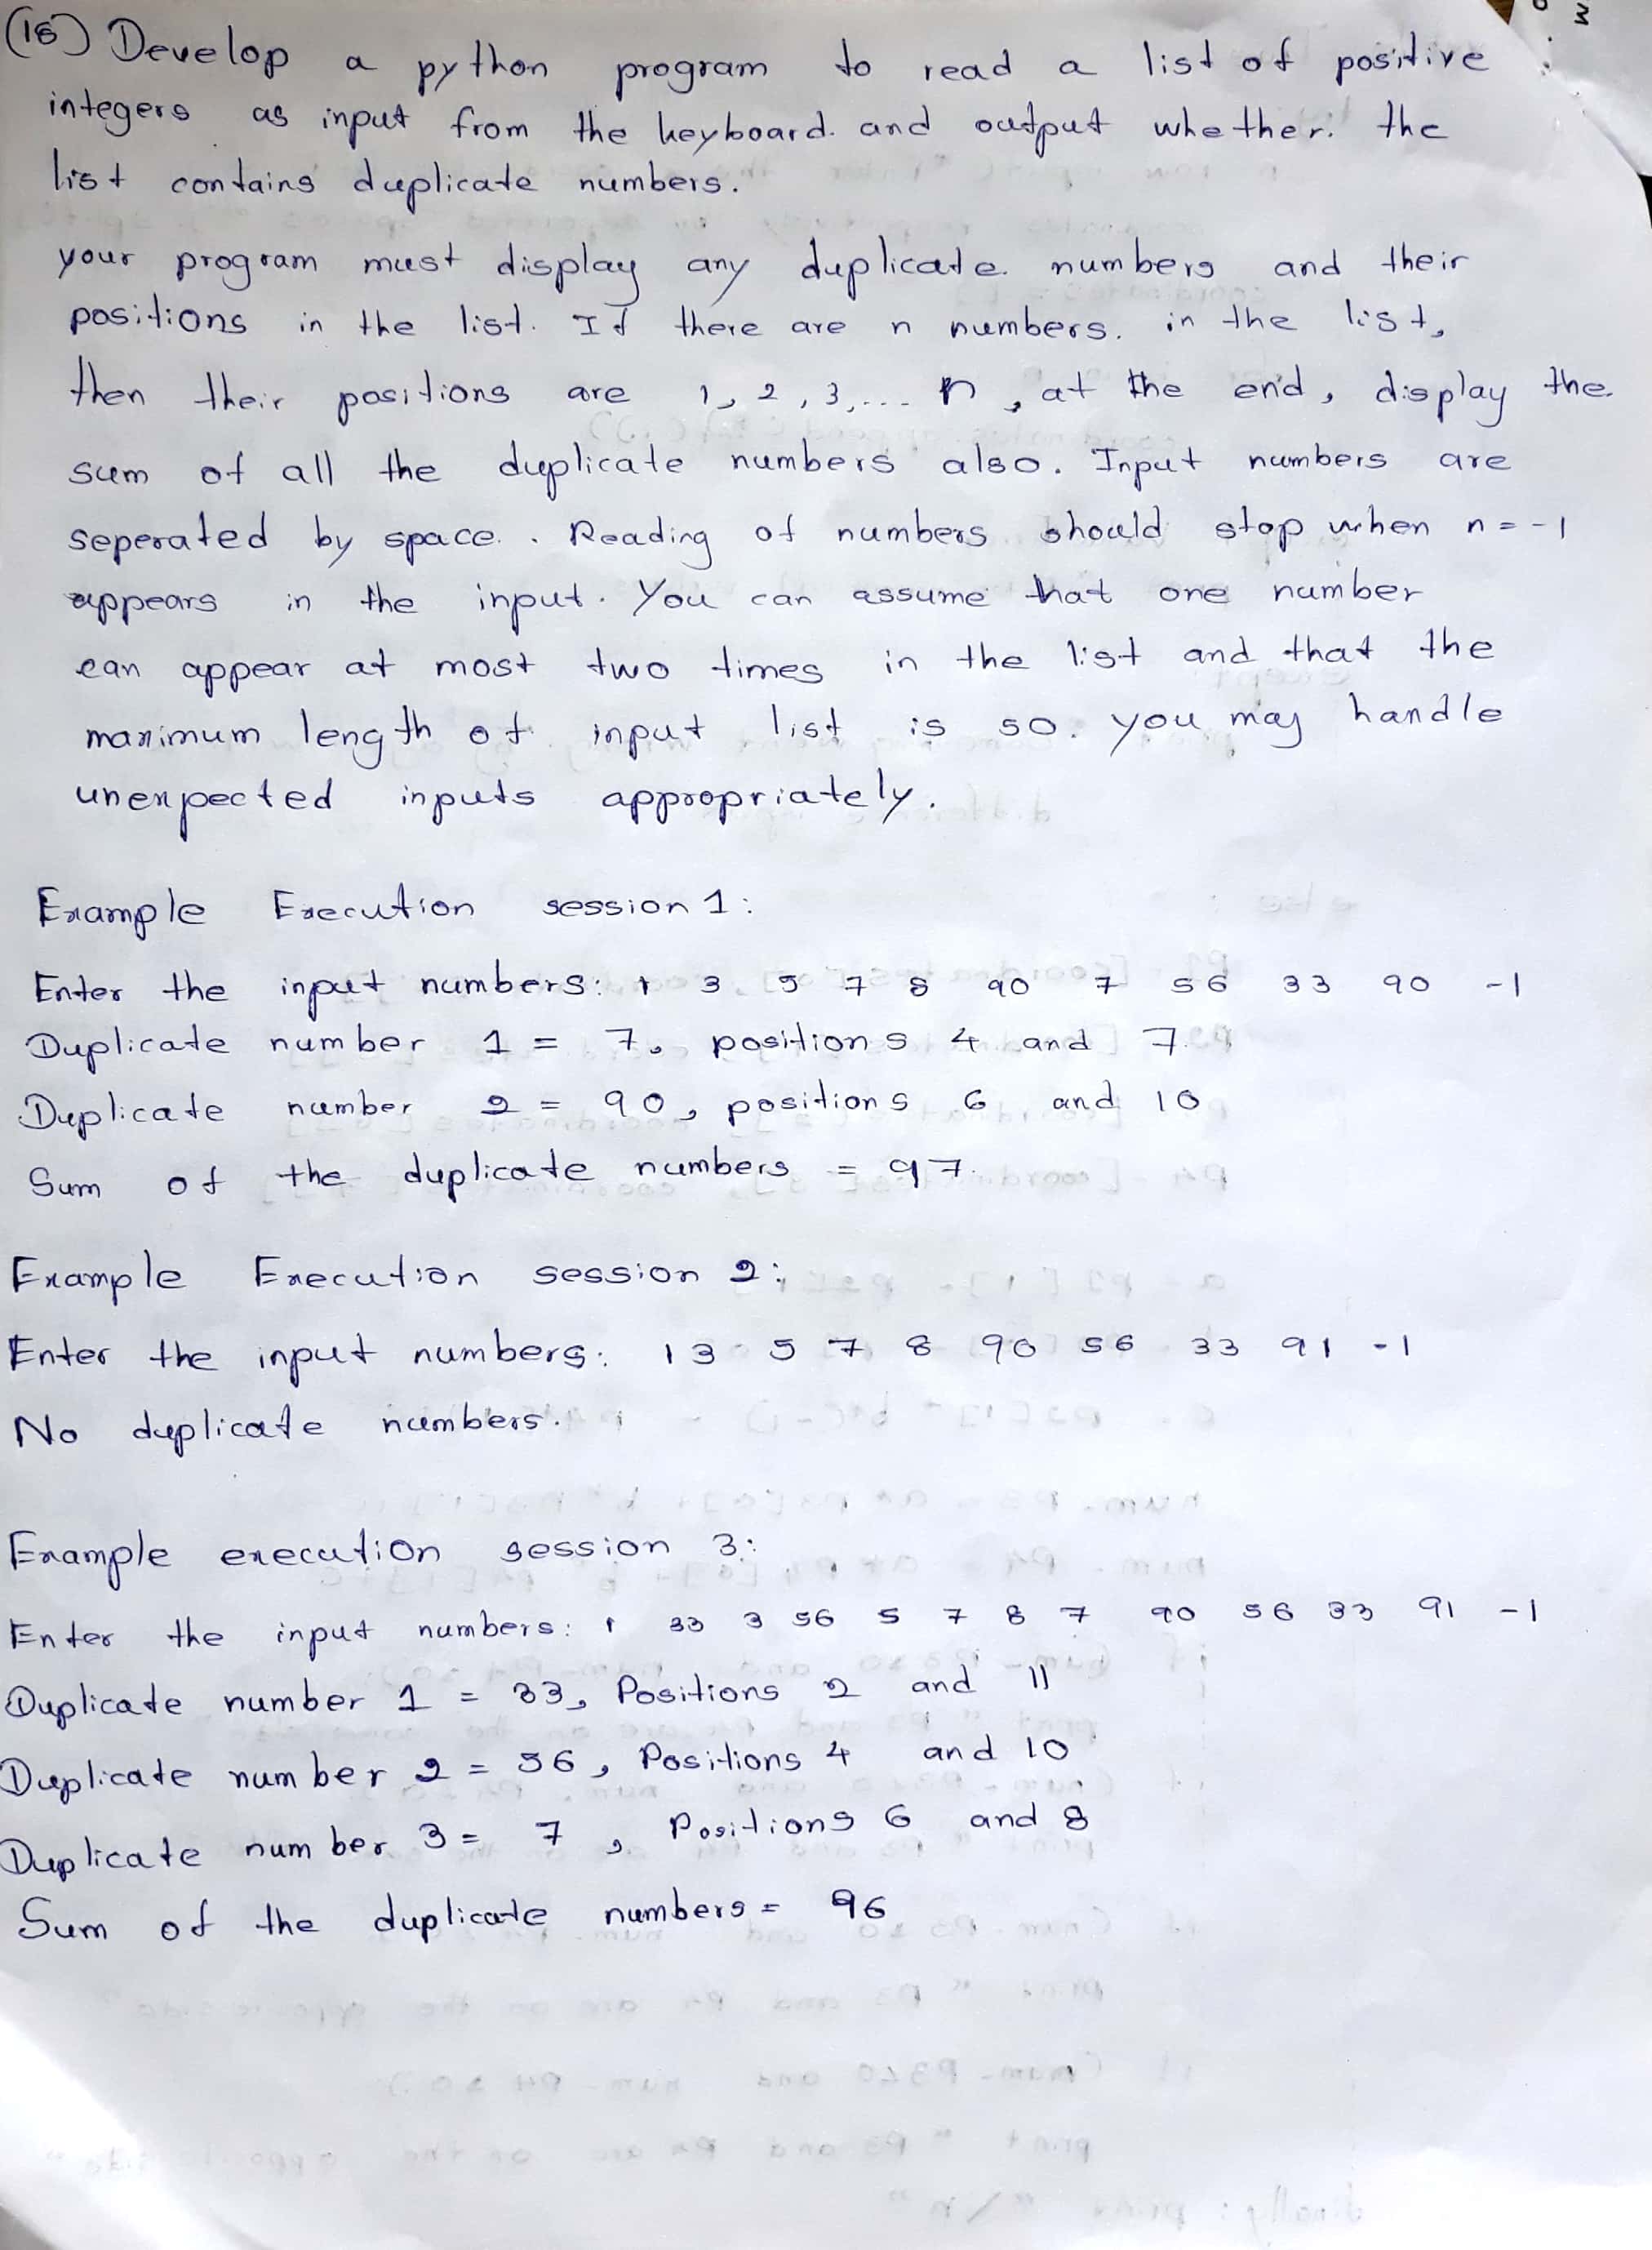 (16) Develop a python program to read a list of positive
integers as input from the keyboard. and output whether. the
list contains duplicate numbers.
your program must display any duplicate. numbers and their
positions in the list. If there are n numbers. in the list,
then their positions are 1, 2, 3, ... n, at the end, display the.
sum of all the duplicate numbers also. Input numbers are
seperated by space. . Reading of numbers should stop when n = -1
appears in the input. You can assume that one number
can appear at most two times in the list and that the
maximum length of input list is 50. you may handle
unexpected inputs appropriately.
Example Execution session 1:
Enter the input numbers: 1 3 5 7 8 90 7 56 33 90 -1
Duplicate number 1 = 7, positions 4 and 7.
Duplicate number 2 = 90, positions 6 and 10
Sum of the duplicate numbers = 97.
Example Execution session 2:
Enter the input numbers: 1 3 5 7 8 90 56 33 91 -1
No duplicate numbers.
Example execution session 3:
Enter the input numbers: 1 33 3 56 5 7 8 7 90 56 33 91 -1
Duplicate number 1 = 33, Positions 2 and 11
Duplicate number 2 = 56, Positions 4 and 10
Duplicate number 3 = 7, Positions 6 and 8
Sum of the duplicate numbers = 96